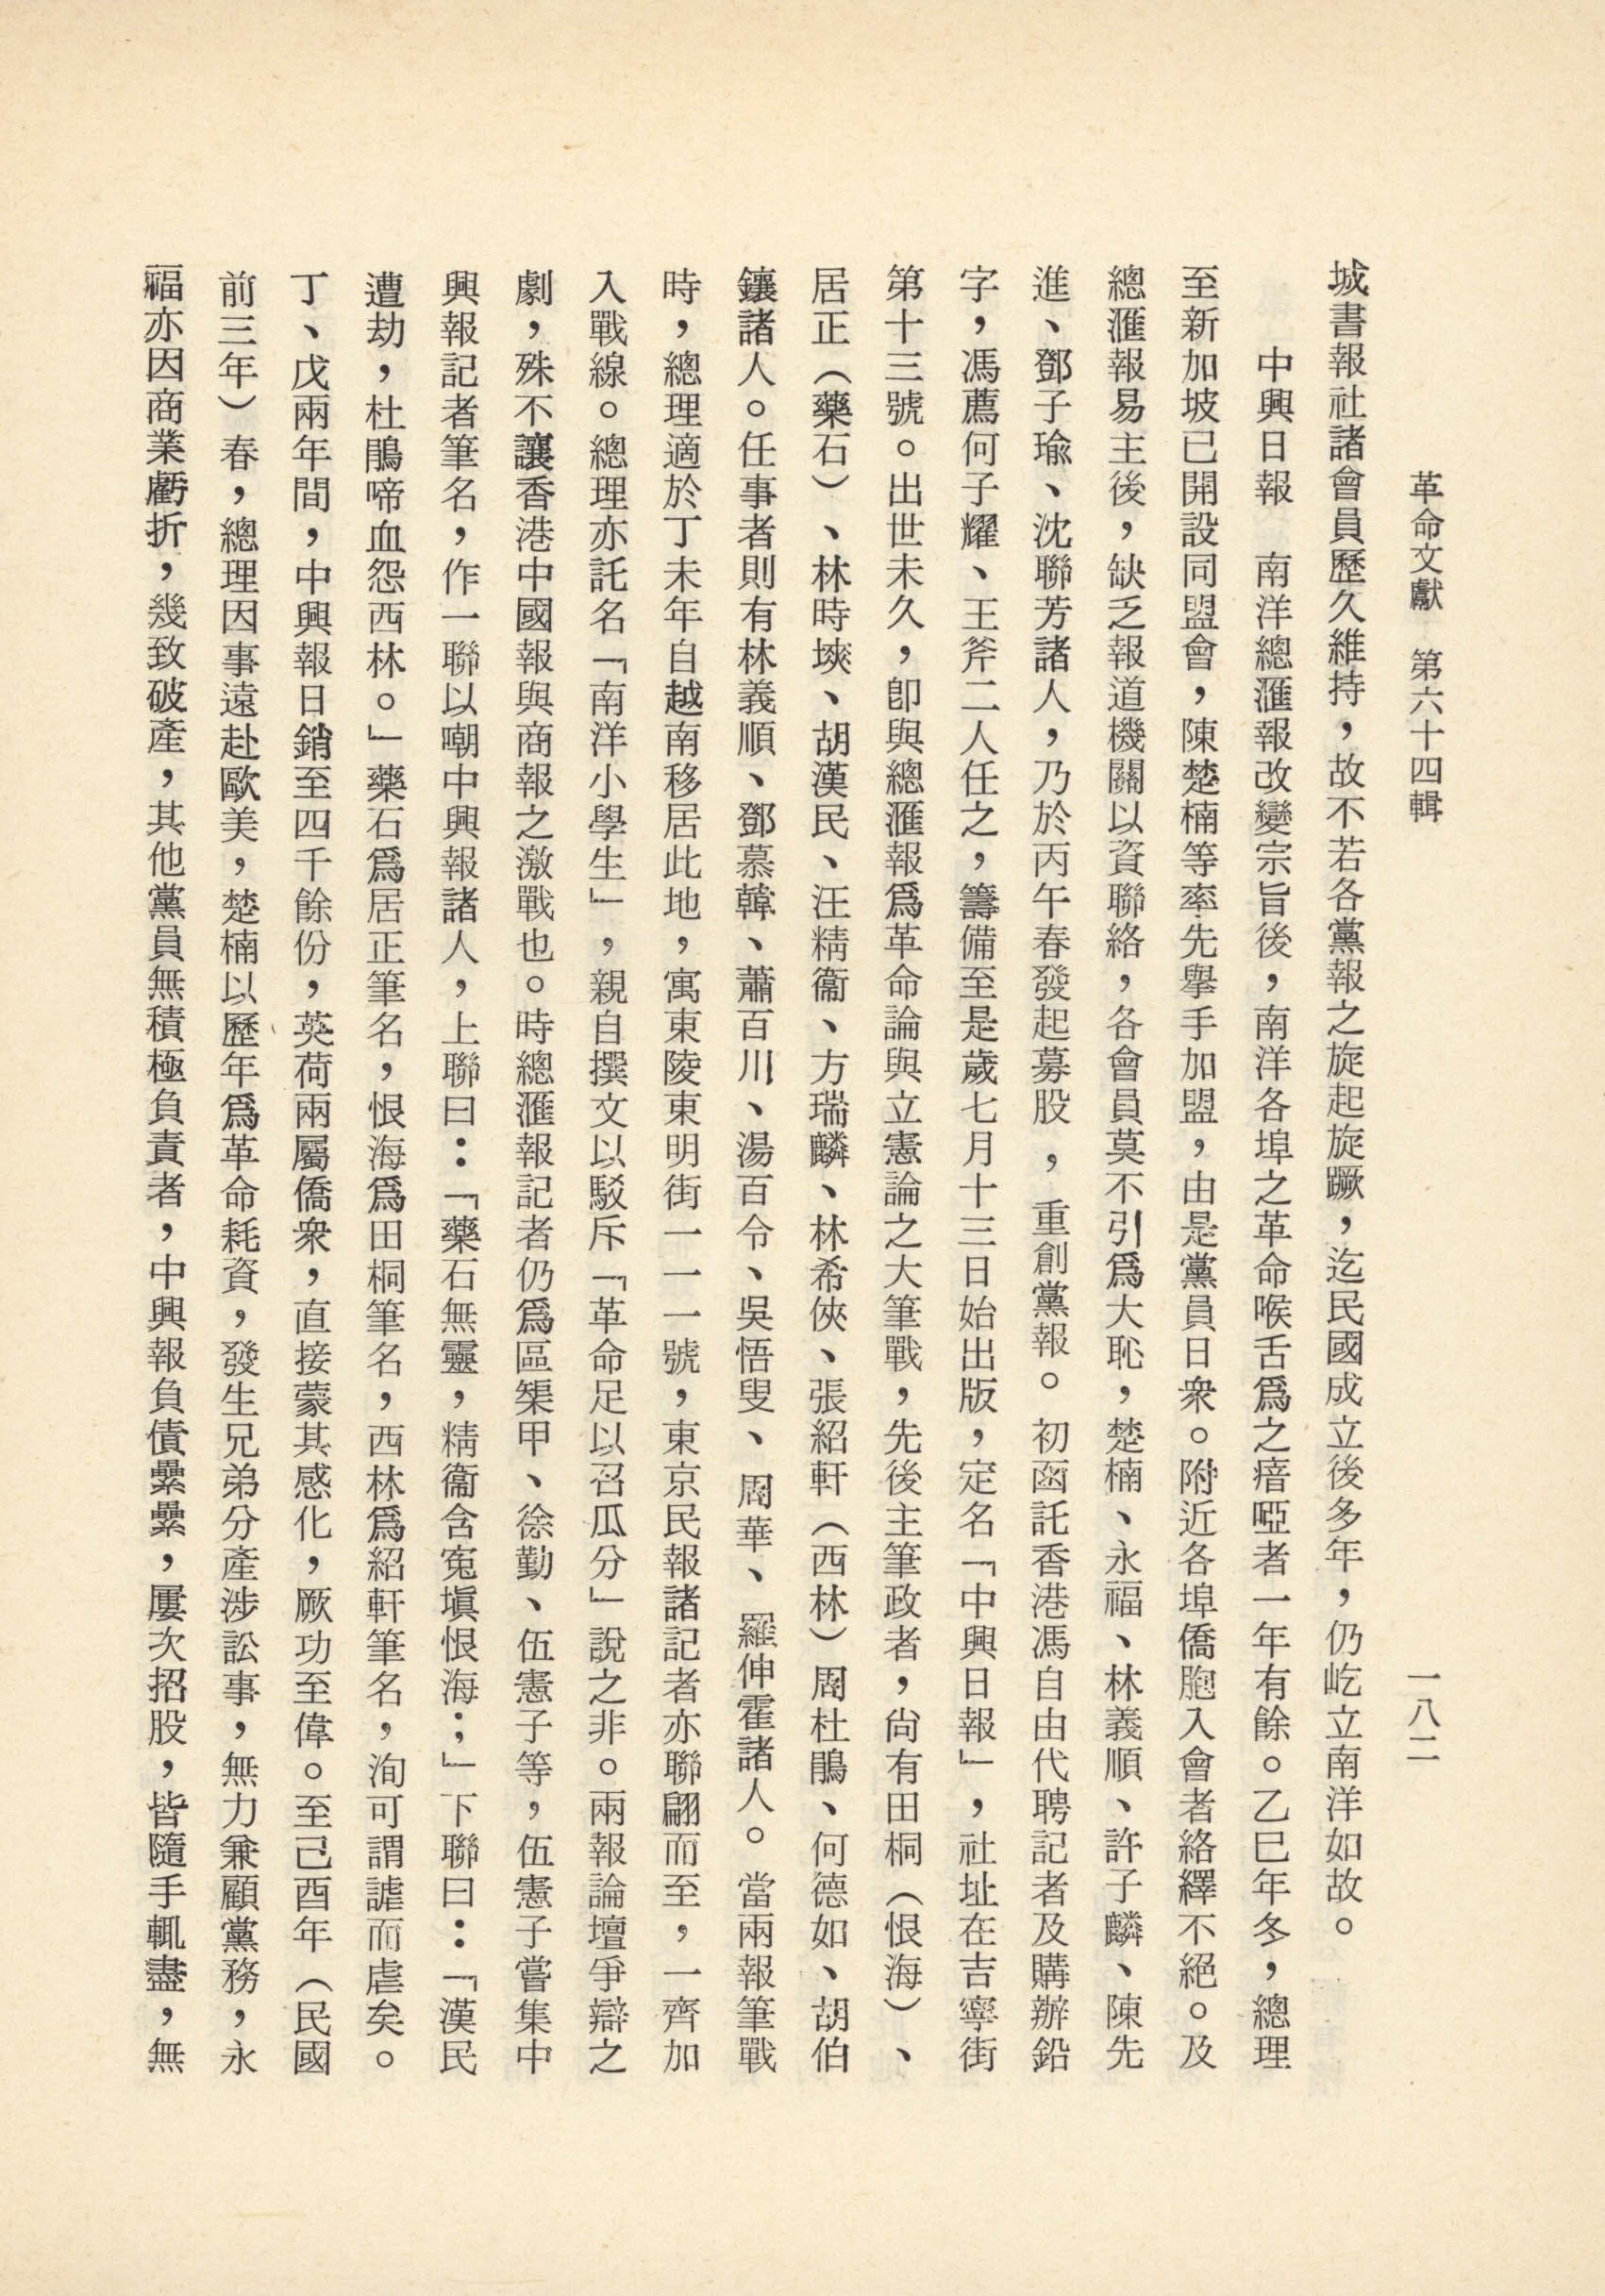 革命文獻　第六十四輯
一八二
城書報社諸會員歷久維持，故不若各黨報之旋起旋蹶，迄民國成立後多年，仍屹立南洋如故。
中興日報　南洋總滙報改變宗旨後，南洋各埠之革命喉舌爲之瘖啞者一年有餘。乙巳年冬，總理
至新加坡已開設同盟會，陳楚楠等率先舉手加盟，由是黨員日衆。附近各埠僑胞入會者絡繹不絕。及
總滙報易主後，缺乏報道機關以資聯絡，各會員莫不引爲大恥，楚楠、永福、林義順、許子麟、陳先
進、鄧子瑜、沈聯芳諸人，乃於丙午春發起募股，重創黨報。初函託香港馮自由代聘記者及購辦鉛
字，馮薦何子耀、王斧二人任之，籌備至是歲七月十三日始出版，定名「中興日報」，社址在吉寧街
第十三號。出世未久，卽與總滙報爲革命論與立憲論之大筆戰，先後主筆政者，尙有田桐（恨海）、
居正（藥石）、林時塽、胡漢民、汪精衞、方瑞麟、林希俠、張紹軒（西林）周杜鵑、何德如、胡伯
鑲諸人。任事者則有林義順、鄧慕韓、蕭百川、湯百令、吳悟叟、周華、羅伸霍諸人。當兩報筆戰
時，總理適於丁未年自越南移居此地，寓東陵東明街一一一號，東京民報諸記者亦聯翩而至，一齊加
入戰線。總理亦託名「南洋小學生」，親自撰文以駁斥「革命足以召瓜分」說之非。兩報論壇爭辯之
劇，殊不讓香港中國報與商報之激戰也。時總滙報記者仍爲區榘甲、徐勤、伍憲子等，伍憲子嘗集中
興報記者筆名，作一聯以嘲中興報諸人，上聯曰：「藥石無靈，精衞含寃塡恨海；」下聯曰：「漢民
遭劫，杜鵑啼血怨西林。」藥石爲居正筆名，恨海爲田桐筆名，西林爲紹軒筆名，洵可謂謔而虐矣。
丁、戊兩年間，中興報日銷至四千餘份，英荷兩屬僑衆，直接蒙其感化，厥功至偉。至己酉年（民國
前三年）春，總理因事遠赴歐美，楚楠以歷年爲革命耗資，發生兄弟分產涉訟事，無力兼顧黨務，永
福亦因商業虧折，幾致破產，其他黨員無積極負責者，中興報負債纍纍，屢次招股，皆隨手輒盡，無